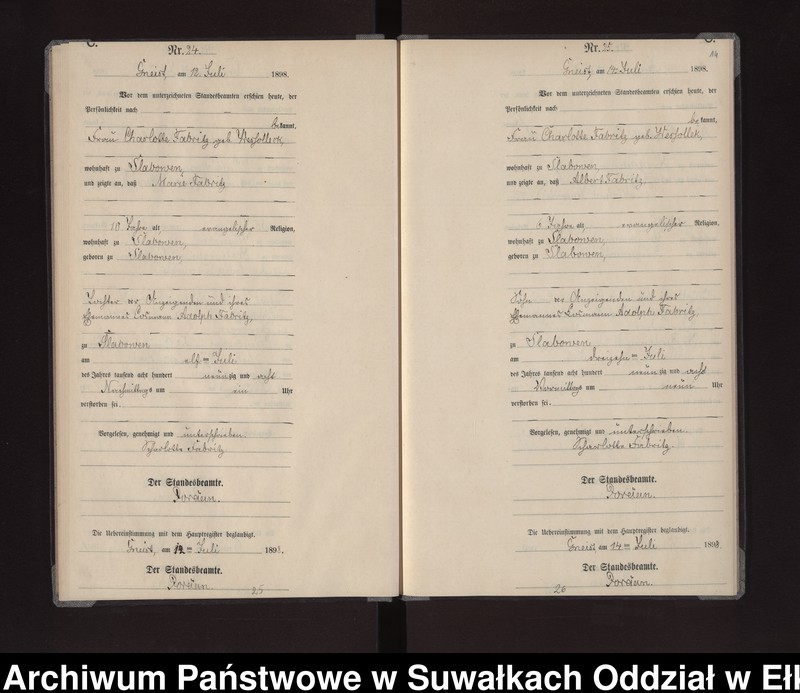 C.
Nr. 24.
Gneist, am 12. Juli 1898.
Vor dem unterzeichneten Standesbeamten erschien heute, der
Persönlichkeit nach
bekannt,
Frau Charlotte Fabritz geb. Wessolleck,
wohnhaft zu Slabowen,
und zeigte an, daß Marie Fabritz
10 Jahre alt evangelischer Religion,
wohnhaft zu Slabowen,
geboren zu Slabowen,
Tochter der Anzeigenden und ihres
Ehemannes Losmann Adolph Fabritz,
zu Slabowen
am elften Juli
des Jahres tausend acht hundert neunzig und acht
Nachmittags um ein Uhr
verstorben sei.
Vorgelesen, genehmigt und unterschrieben.
Scharlotte Fabritz
Der Standesbeamte.
Die Uebereinstimmung mit dem Hauptregister beglaubigt.
Gneist, am 12ten Juli 1898.
Der Standesbeamte.
25
C.
14
Nr. 25.
Gneist, am 14. Juli 1898.
Vor dem unterzeichneten Standesbeamten erschien heute, der
Persönlichkeit nach
bekannt,
Frau Charlotte Fabritz geb. Wessolleck,
wohnhaft zu Slabowen,
und zeigte an, daß Albert Fabritz,
6 Jahre alt evangelischer Religion,
wohnhaft zu Slabowen,
geboren zu Slabowen,
Sohn der Anzeigenden und ihres
Ehemannes Losmann Adolph Fabritz,
zu Slabowen
am dreizehnten Juli
des Jahres tausend acht hundert neunzig und acht
Vormittags um neun Uhr
verstorben sei.
Vorgelesen, genehmigt und unterschrieben.
Scharlotte Fabritz.
Der Standesbeamte.
Die Uebereinstimmung mit dem Hauptregister beglaubigt.
Gneist am 14ten Juli 1898.
Der Standesbeamte.
26
Archiwum Państwowe w Suwałkach Oddział w Eł